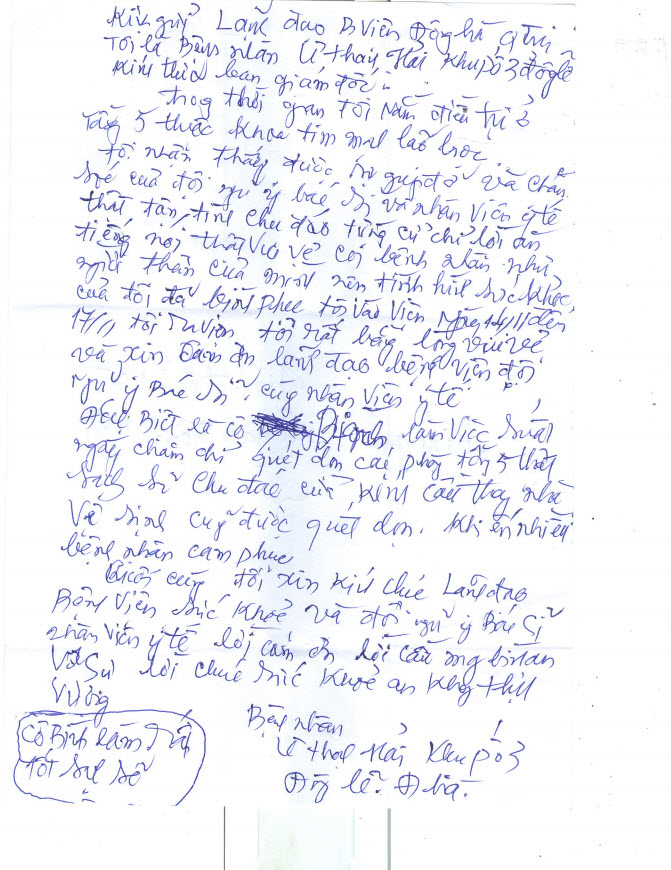 Kính quý Lãnh đạo BViện Đông hà Q Trị
Tôi là Bệnh nhân Lê thay Hải Khu phố 3 đôglễ
Kính thưa ban giám đốc:
trog thời gian tôi nằm điều trị ở
Tầng 5 thuộc khoa tim mạch lão học
tôi nhận thấy được sự giúp đở và chăm
sóc của đội ngủ y bác sỉ và nhân viên y tế
thật tận tình chu đáo từng cử chỉ lời ăn
tiếng nói thật vui vẻ coi bệnh nhân như
người thân của mình nên tình hình sức khỏe
của tôi đã bình phục tôi vào viện ngày 14/11 đến
17/11 tôi ra viện tôi rất bằng lòng vui vẻ
và xin cảm ơn lãnh đạo bệnh viện đội
ngủ y Bác Sỉ cùng nhân viên y tế
Đặc Biệt là cô Bình làm việc suất
ngày chăm chỉ quét dọn các phòg tầng 5 thật
sạch sẽ chu đáo cửa kính cầu thag nhà
Vệ sinh cug được quét dọn. Khiến nhiều
bệnh nhân cam phục
Cuối cùng tôi xin kính chúc Lảnh đạo
Bệnh Viện sức khoẻ và đội ngủ y Bác Sĩ
nhân viên y tế lời cảm ơn lời cầu mg bình an
Với lời chúc sức khoẻ an khg thịh
Vượng
Bệnh nhân
Lê thay Hải Khu phố 3
Đôg lễ. Đ hà.
Cô Bình làm rất
tốt sạch sẽ